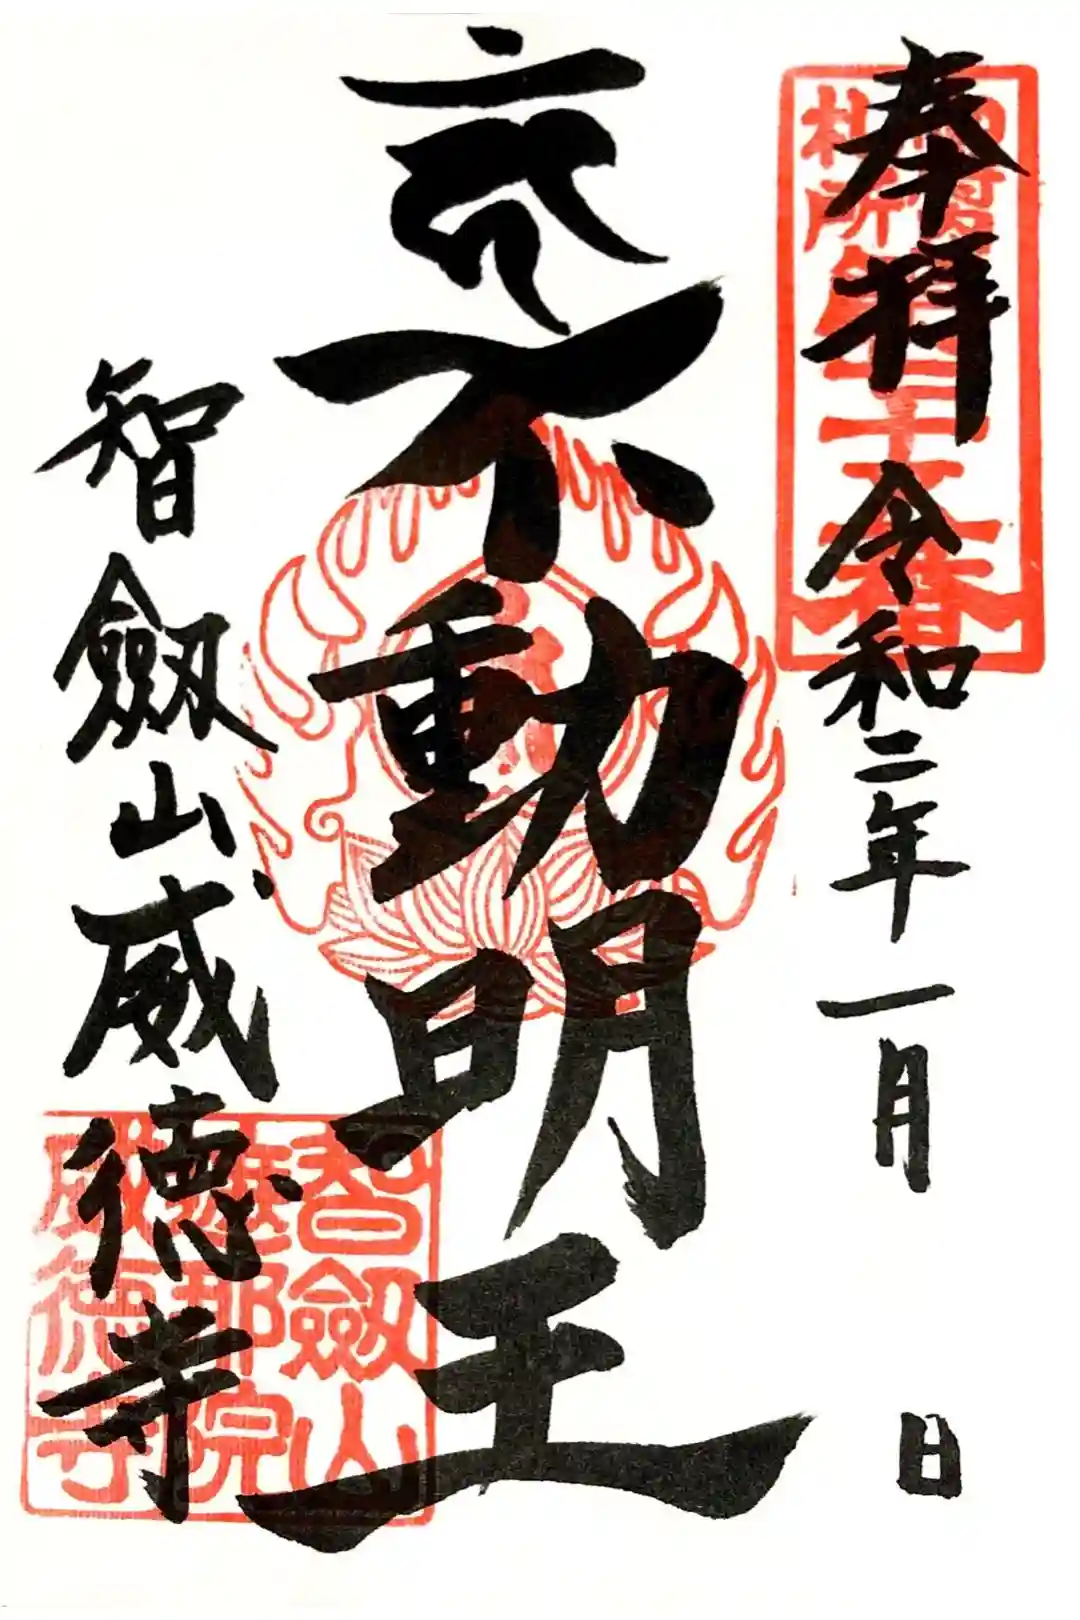 奉拝 令和二年一月 日
不動明王
智劔山威徳寺
札所
智劔山
遮那院
威徳寺